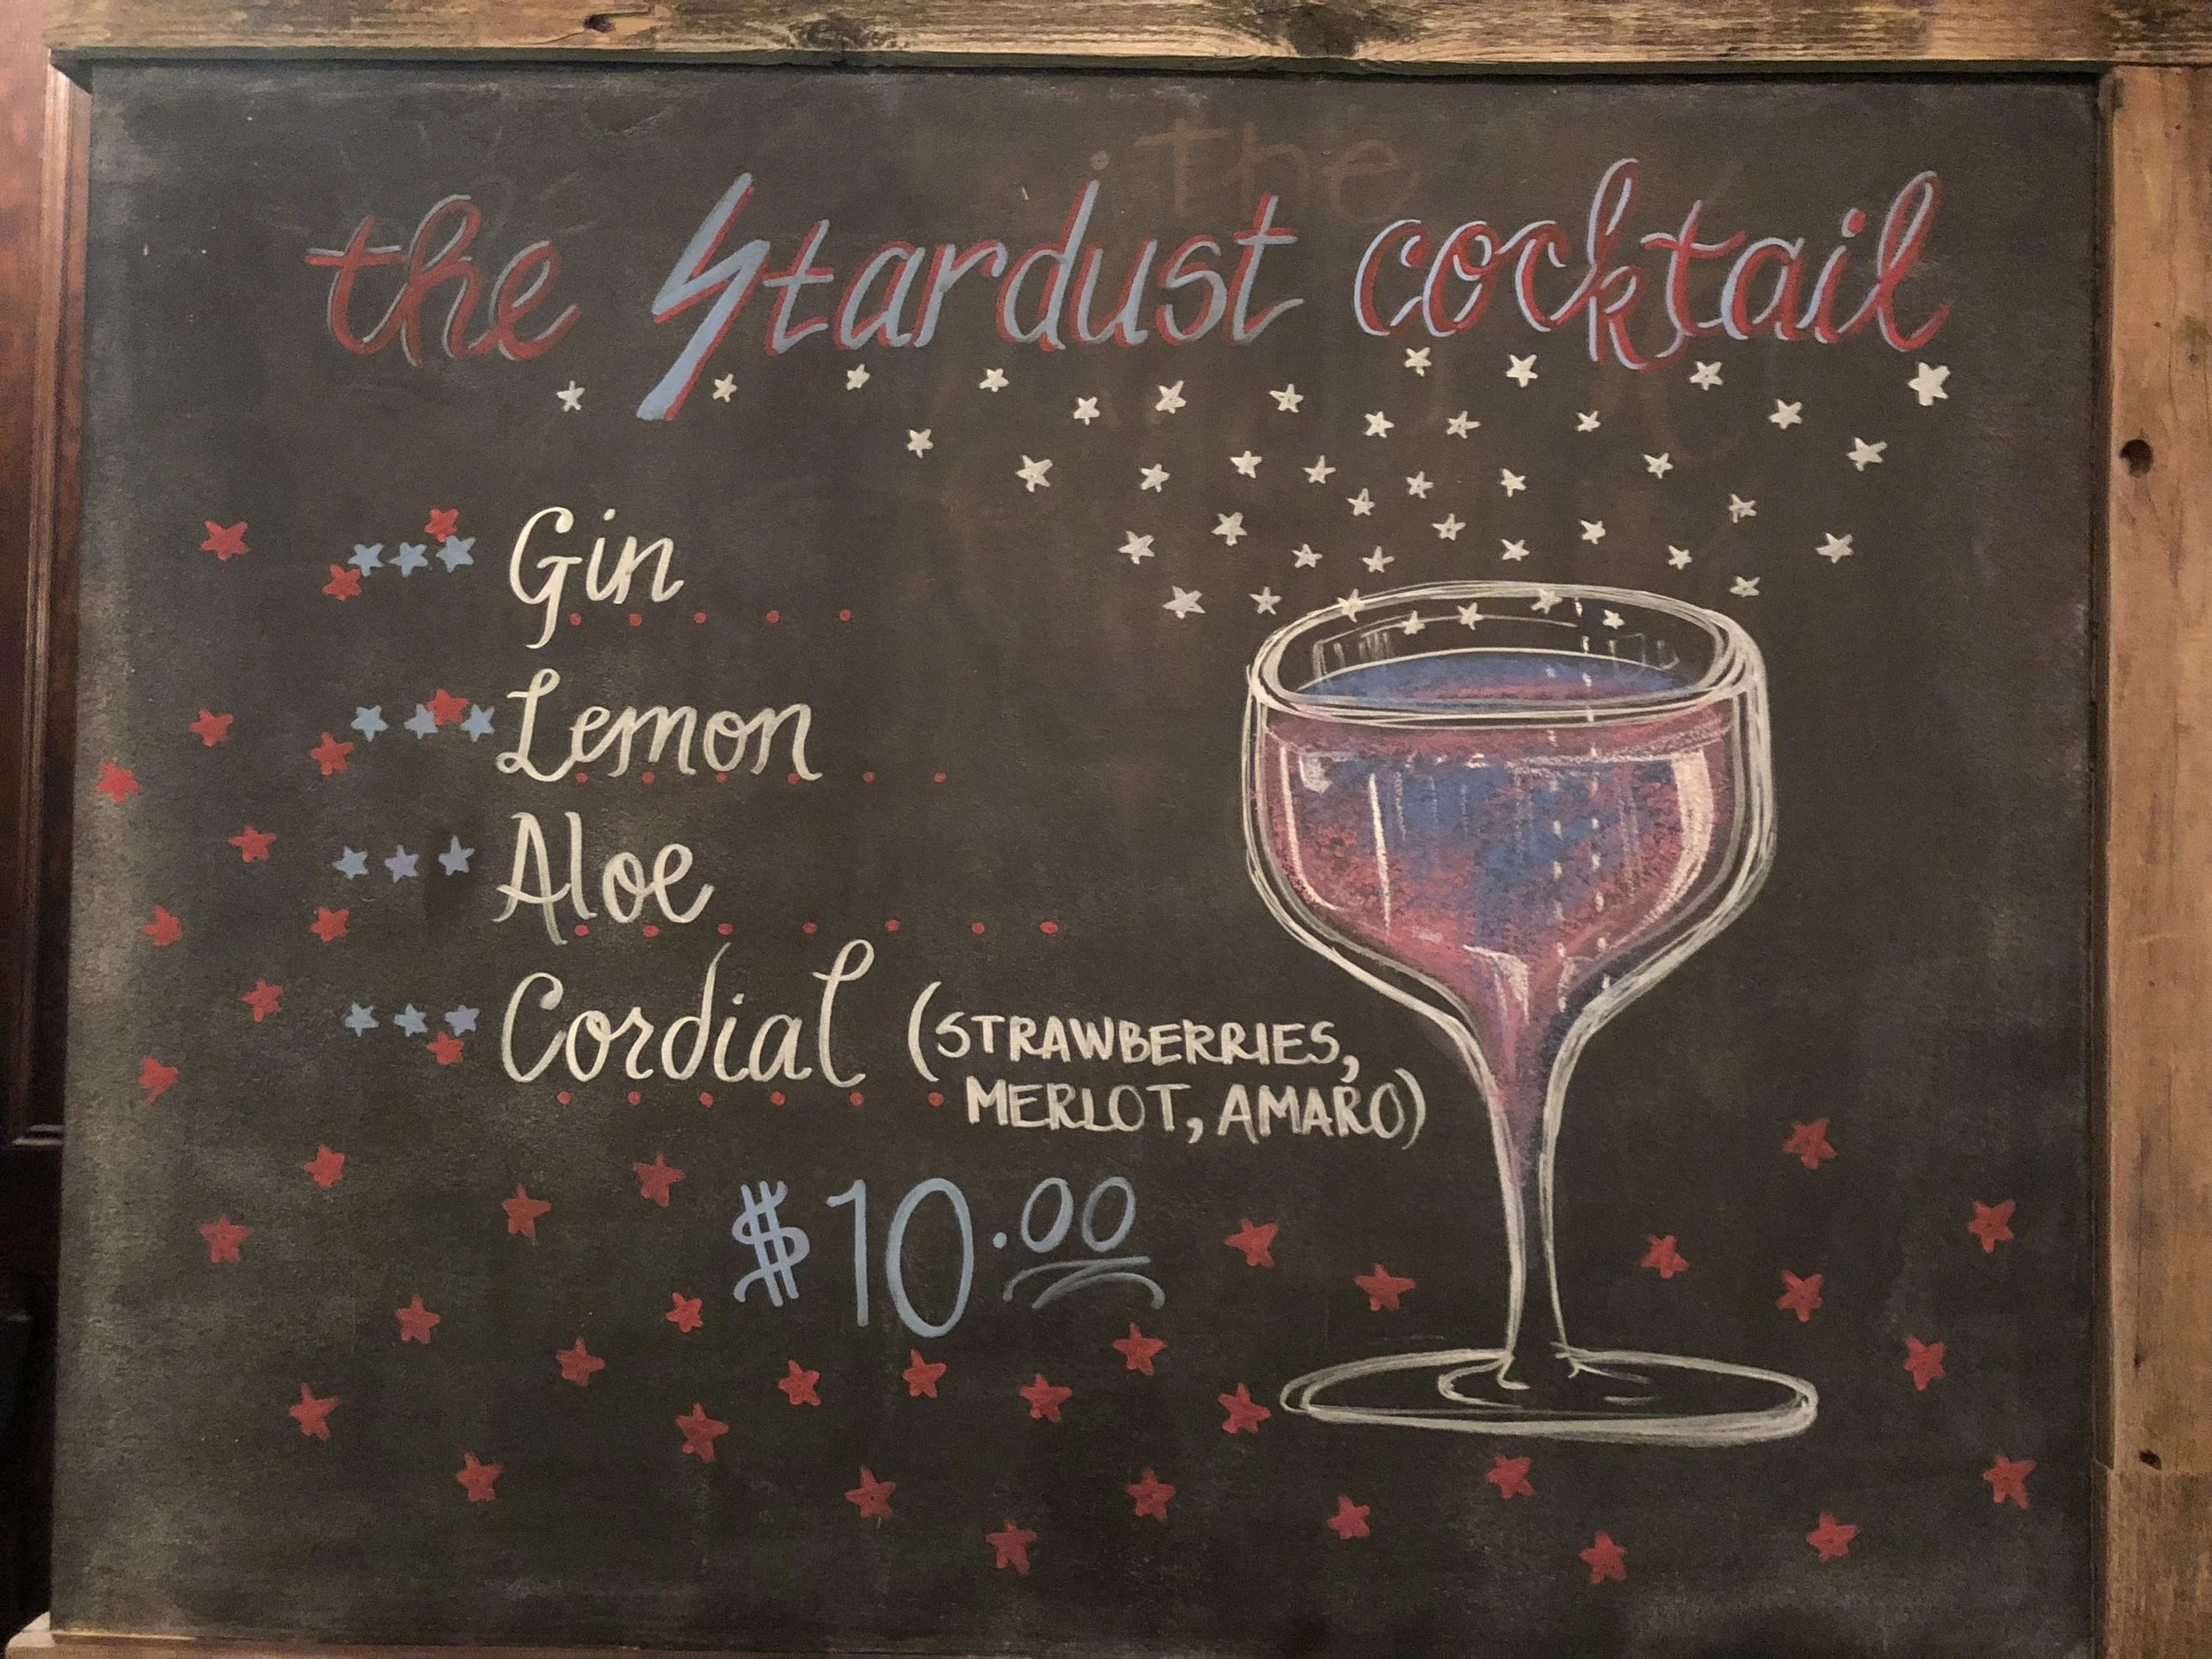 the
the Stardust cocktail
Gin
Lemon
Aloe
Cordial (STRAWBERRIES,
MERLOT, AMARO)
$10.00